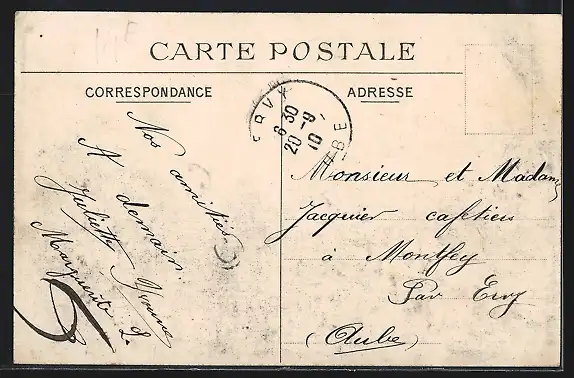 CARTE POSTALE
CORRESPONDANCE
ADRESSE
Nos amitiés
A demain
Juliette Yvonne
Marguerite L.
ERVY
6 30
20 -9
10
AUBE
Monsieur et Madame
Jacquier cafetiers
à Montfey
Par Ervy
(Aube)